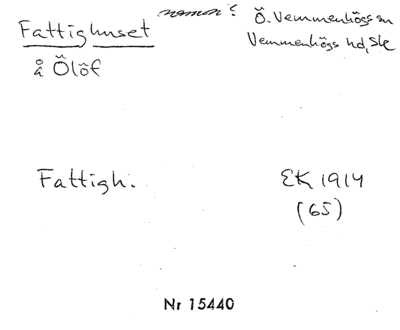 namn?
Fattighuset
å Ölöf
Ö. Vemmenhögs sn
Vemmenhögs hd, Sk
Fattigh.
EK 1914
(65)
Nr 15440